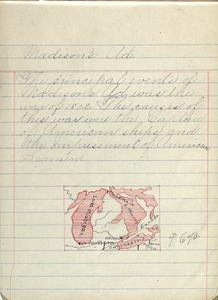 Madison's Ad.
The principal events of
Maddison's Ad. was the
war of 1812. The causes of
this war were the Capture
of American ships, and
the impressment of American
Seamen.